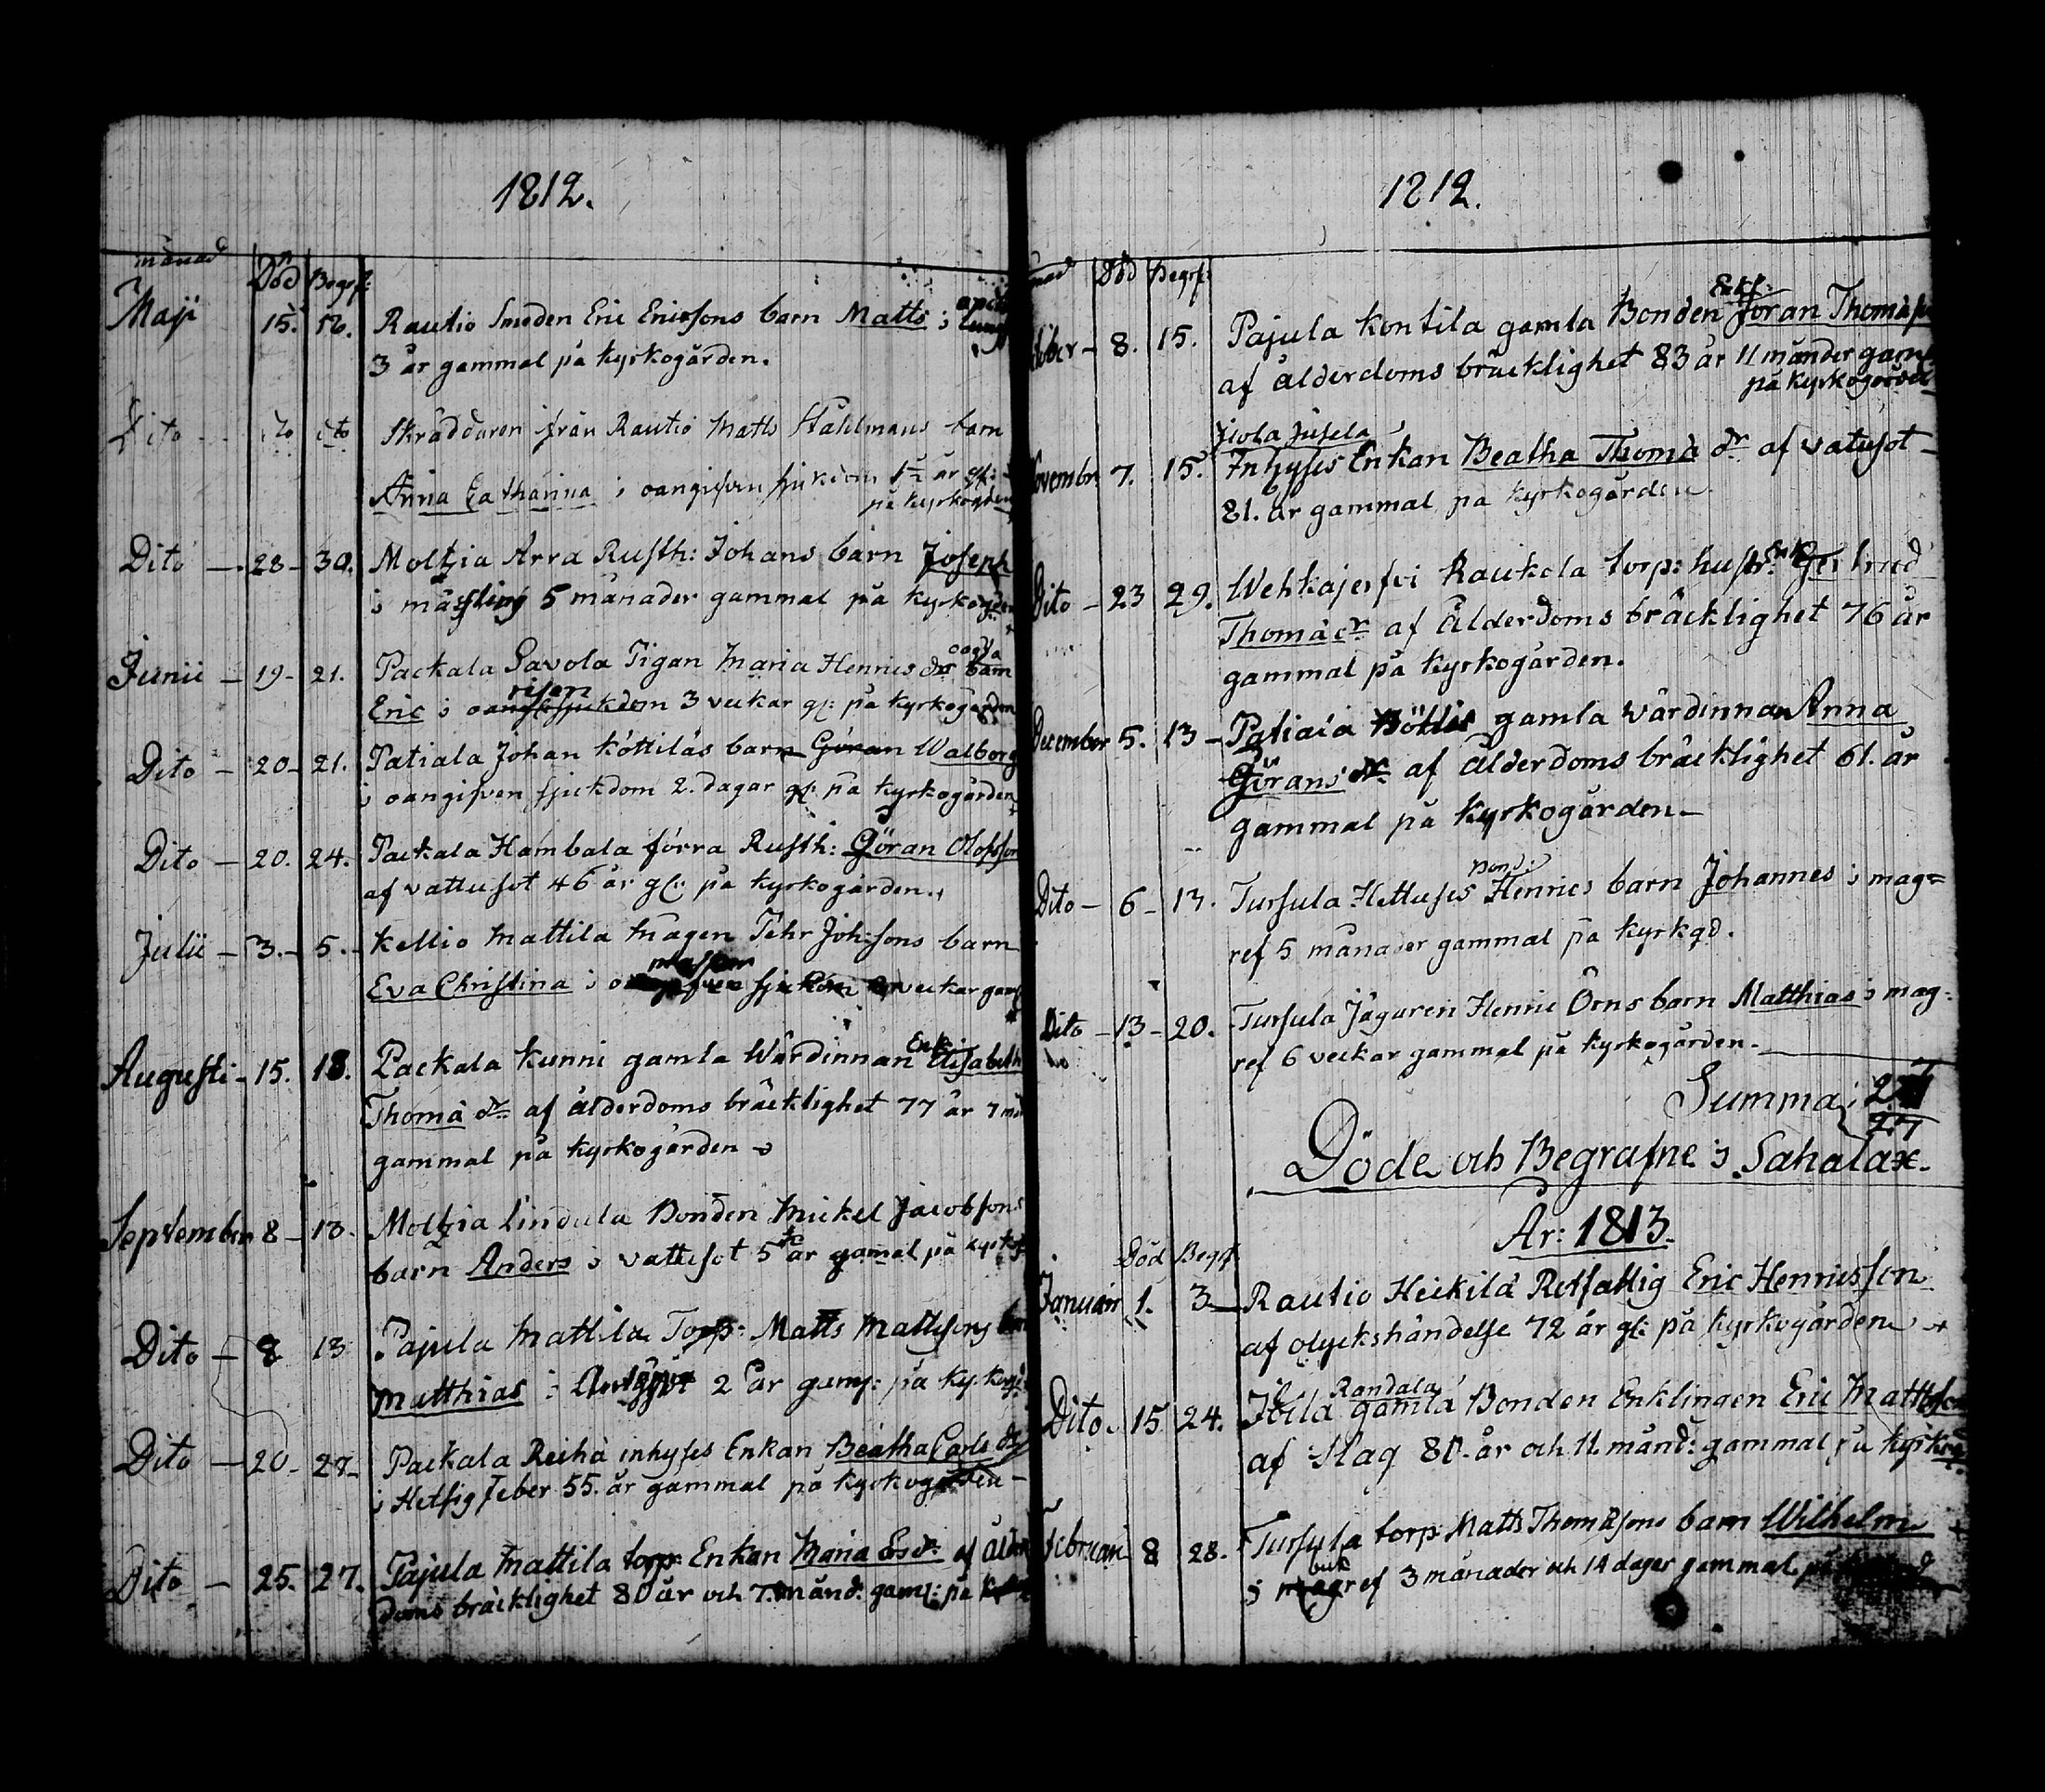 1812.
månad Död Begrf:
Maji 15. 16. Rautio Smeden Eric Ericssons barn Matts i
3 år gammal på kyrkogården.
Dito do dito Skräddaren från Rautio Matts Ståhlmans barn
Anna Catharina i oangifven sjukdom 1½ år gl:
på kyrkogården
Dito - 28 - 30. Moltzia Arra Rusth: Johans barn Joseph
i mässling 5 månader gammal på kyrkogården
Junii - 19 - 21. Packala Savola Pigan Maria Henricsdr oägta barn
Eric i risen 3 veckor gl: på kyrkogården
Dito - 20 - 21. Patiala Johan Köttiläs barn Göran Walborg
i oangifven sjuckdom 2. dagar gl: på kyrkogården
Dito - 20. 24. Packala Hambala förra Rusth: Göran Olofsson
af vattusot 46 år gl: på kyrkogården.
Julii - 3. - 5. - Kellio Mattila Mågen Pehr Joh:sons barn
Eva Christina i veckor gaml
Augusti - 15. 18. Packala Kunni gamla Wärdinnan Enk: Elisabeth
Thomä dr af ålderdoms bräcklighet 77 år 7 mån
gammal på kyrkogården
September 8 - 13. Moltzia Lindula Bonden Mickel Jacobsons
barn Anders i vattusot 5 år gamal på kyrkog
Dito - 8 13 Pajula Mattila Torp: Matts Mattssons barn
Matthias i 2 år gam: på kyrkog:
Dito - 20 - 27 - Packala Reihä inhyses Enkan Beatha Carls dr
i Hetsig feber 55. år gammal på kyrkogården -
Dito - 25. 27. Pajula Mattila torp: Enkan Maria Ersdr: af ålder
doms bräcklighet 80 år och 7. månd: gaml: på
1812.
månad Död Begrf:
October - 8. 15. Pajula Kontila gamla Bonden Enkl: Jöran Thomäson
af ålderdoms bräcklighet 83 år 11 månder gam
på kyrkogården
Jusela
Novembr 7. 15. Inhyses Enkan Beatha Thomä dr af vatusot -
81. år gammal på kyrkogården
Dito - 23 29. Wehkajerfvi Raukola torp: hustr: Enk Gertrud
Thomä dr af ålderdoms bräcklighet 76 år
gammal på kyrkogården.
December 5. 13 - Patiala Böttis gamla Wärdinnan Anna
Görans dr af ålderdoms bräcklighet 61. år
gammal på kyrkogården -
Dito - 6 - 13. Tursula Hettuses Bond: Henrics barn Johannes i mag=
ref 5 månader gammal på kyrkgd.
Dito - 13 - 20. Tursula Jägaren Henric Örns barn Matthias i mag:
ref 6 veckar gammal på kyrkogården -
Summa: 27
27
Döde och Begrafne i Sahalax.
År: 1813.
Död Begrf
Januarii 1. 3 - Rautio Heickilä Rotfattig Eric Henricsson
af olyckshändelse 72 år gl: på kyrkogården
Dito. 15. 24. Joila Randala gamla Bonden Enklingen Eric Mattsson
af Slag 80. år och 11. månd: gammal på kyrkog
Februarii 8 28. Tursula torp: Matts Thomæsons barn Wilhelm
i bukref 3 månader och 14 dagar gammal